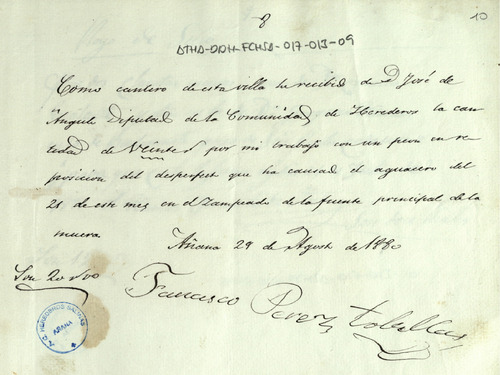 8
10
ATHA-DAH-FCHSA-017-013-09
Como cantero de esta villa he recibido de D José de
Angulo Diputado de la Comunidad de Herederos la can-
tidad de Veinte r por mi trabajo con un peon en re-
posicion del desperfecto que ha causado el aguacero del
21 de este mes en el Zampeado de la fuente principal de la
muera.
Añana 29 de Agosto de 1880
Son 20 r
Francisco Perez
HEREDEROS SALINAS
AÑANA